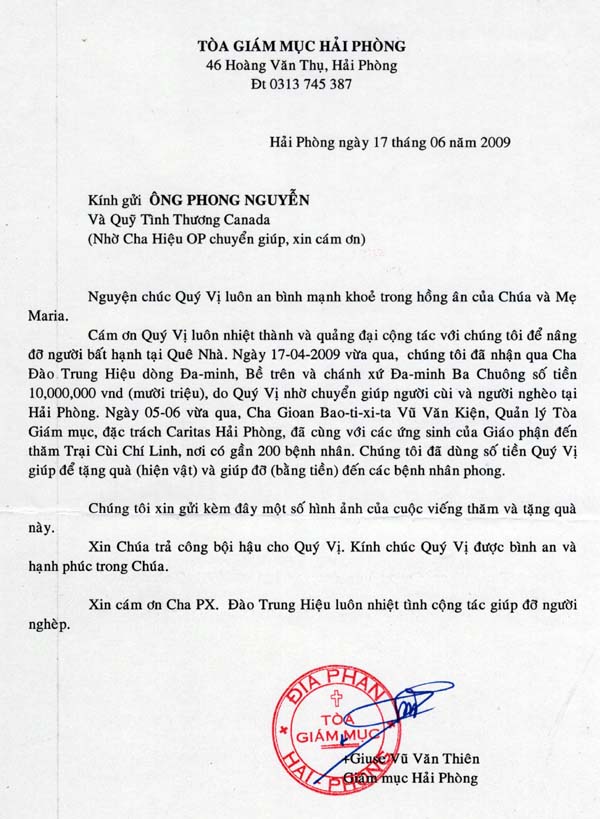 TÒA GIÁM MỤC HẢI PHÒNG
46 Hoàng Văn Thụ, Hải Phòng
Đt 0313 745 387
Hải Phòng ngày 17 tháng 06 năm 2009
Kính gửi ÔNG PHONG NGUYỄN
Và Quỹ Tình Thương Canada
(Nhờ Cha Hiệu OP chuyển giúp, xin cám ơn)
Nguyện chúc Quý Vị luôn an bình mạnh khoẻ trong hồng ân của Chúa và Mẹ
Maria.
Cám ơn Quý Vị luôn nhiệt thành và quảng đại cộng tác với chúng tôi để nâng
đỡ người bất hạnh tại Quê Nhà. Ngày 17-04-2009 vừa qua, chúng tôi đã nhận qua Cha
Đào Trung Hiệu dòng Đa-minh, Bề trên và chánh xứ Đa-minh Ba Chuông số tiền
10,000,000 vnd (mười triệu), do Quý Vị nhờ chuyển giúp người cùi và người nghèo tại
Hải Phòng. Ngày 05-06 vừa qua, Cha Gioan Bao-ti-xi-ta Vũ Văn Kiện, Quản lý Tòa
Giám mục, đặc trách Caritas Hải Phòng, đã cùng với các ứng sinh của Giáo phận đến
thăm Trại Cùi Chí Linh, nơi có gần 200 bệnh nhân. Chúng tôi đã dùng số tiền Quý Vị
giúp để tặng quà (hiện vật) và giúp đỡ (bằng tiền) đến các bệnh nhân phong.
Chúng tôi xin gửi kèm đây một số hình ảnh của cuộc viếng thăm và tặng quà
này.
Xin Chúa trả công bội hậu cho Quý Vị. Kính chúc Quý Vị được bình an và
hạnh phúc trong Chúa.
Xin cám ơn Cha PX. Đào Trung Hiệu luôn nhiệt tình cộng tác giúp đỡ người
nghèp.
ĐỊA PHẬN
TÒA
GIÁM MỤC
HẢI PHÒNG
+Giuse Vũ Văn Thiên
Giám mục Hải Phòng